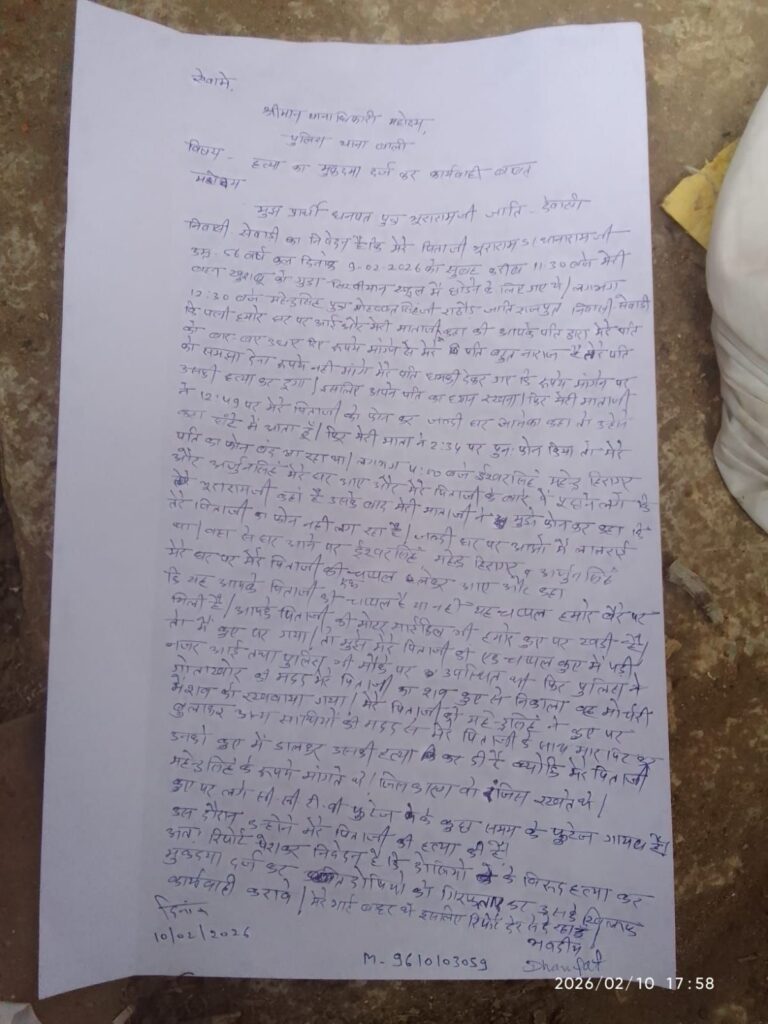 सेवामे,
श्रीमान थानाधिकारी महोदय,
पुलिस थाना बाली
विषय - हत्या का मुकदमा दर्ज कर कार्यवाही बाबत
महोदय
मुझ प्रार्थी धनपत पुत्र भूरारामजी जाति - देवासी
निवासी सेवाडी का निवेदन है कि मेरे पिताजी भूराराम S/ थानारामजी
उम्र - 56 वर्ष कल दिनांक 9-02-2026 को सुबह करीब 11:30 बजे मेरी
को गुडा स्कूल में छोडने के लिए गए थे। लगभग
12:30 बजे महेन्द्रसिंह पुत्र राठौड जाति राजपुत निवासी सेवाडी
कि पत्नी हमारे घर पर आई और मेरी माताजी कहा की आपके पति द्वारा मेरे पति
को बार-बार उधार रुपये मांगने से मेरे पति बहुत नाराज है पति
को समझा देना रुपये नही मांगे मेरे पति धमकी देकर गए कि रुपये मांगने पर
उसकी हत्या कर दुंगा। इसलिए अपने पति का ध्यान रखना। फिर मेरी माताजी
ने 12:49 पर मेरे पिताजी को फोन कर जल्दी घर आने का कहा तो उन्होने
कहा घंटे में आता हूँ। फिर मेरी माता ने 2:34 पर पुनः फोन किया तो मेरे
पति का फोन बंद आ रहा था। लगभग 4:00 बजे ईश्वरसिंह महेन्द्र हिरागर
और अर्जुनसिंह मेरे घर आए और मेरे पिताजी के बारे में पुछने लगे कि
भूरारामजी कहां है उसके बाद मेरी माताजी ने मुझे फोन कर कहा कि
तेरे पिताजी का फोन नही लग रहा है। जल्दी घर पर आओ में
था। वहा से घर आने पर ईश्वरसिंह महेन्द्र हिरागर व अर्जुनसिंह
मेरे घर पर मेरे पिताजी की एक चप्पल लेकर आए और कहा
कि यह आपके पिताजी की चप्पल है या नही यह चप्पल हमारे बेरे पर
मिली है। आपके पिताजी की मोटर साईकिल भी हमारे कुए पर खडी है।
तो मैं कुए पर गया। तो मुझे मेरे पिताजी की एक चप्पल कुए में पडी
नजर आई तथा पुलिस भी मौके पर उपस्थित थी फिर पुलिस ने
गोताखोर की मदद मेरे पिताजी का शव कुए से निकाला वह मोर्चरी
में शव को रखवाया गया। मेरे पिताजी को महेन्द्रसिंह ने कुए पर
बुलाकर अन्य साथियों की मदद से मेरे पिताजी के साथ मारपिट कर
उनको कुए में डालकर उसकी हत्या कर दी है क्योकि मेरे पिताजी
महेन्द्रसिंह के रुपये मांगते थे। जिस कारण वो रंजिस रखते थे।
कुए पर लगे सी.सी.टी.वी फुटेज के कुछ समय के फुटेज गायब है।
उस दौरान उन्होने मेरे पिताजी की हत्या की है।
अतः रिपोर्ट पेशकर निवेदन है कि दोषियो के विरूद्ध हत्या कर
मुकदमा दर्ज कर दोषियो को गिरफ्तार कर उसके खिलाफ
कार्यवाही करावे। मेरे भाई बहार थे इसलिए रिपोर्ट देर से दे रहा हूँ
दिनांक
भवदीय
10/02/2026
M- 9610103059
Dhanpat
2026/02/10 17:58